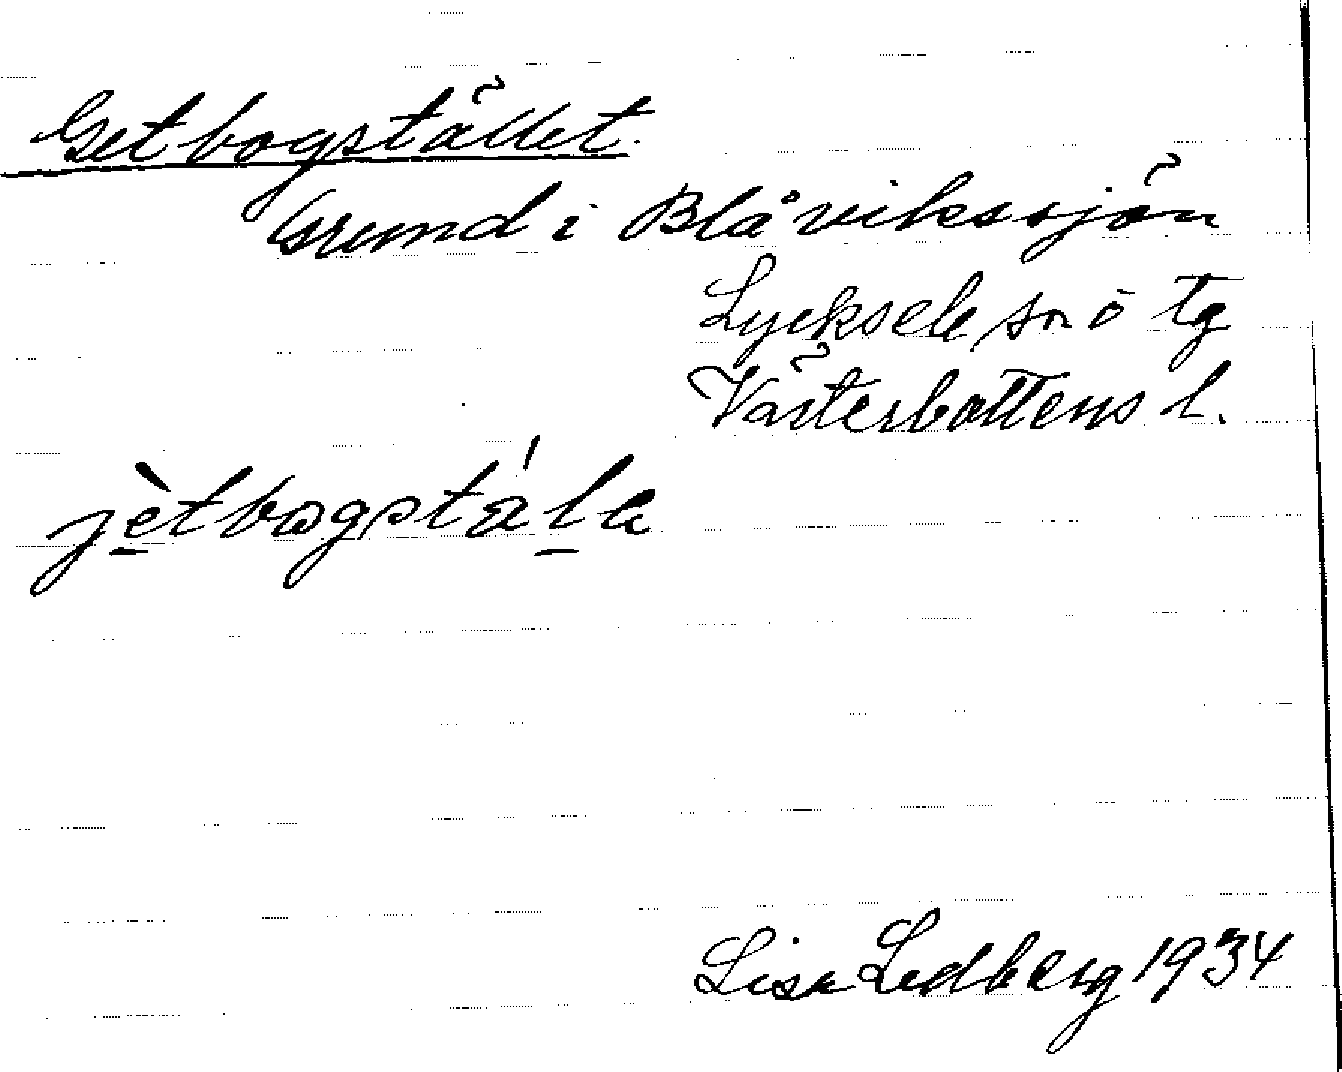 Getbogstället.
Grund i Blåvikssjön
Lycksele sn o tg
Västerbottens l.
jètbogstálе
Lisa Lidberg 1934